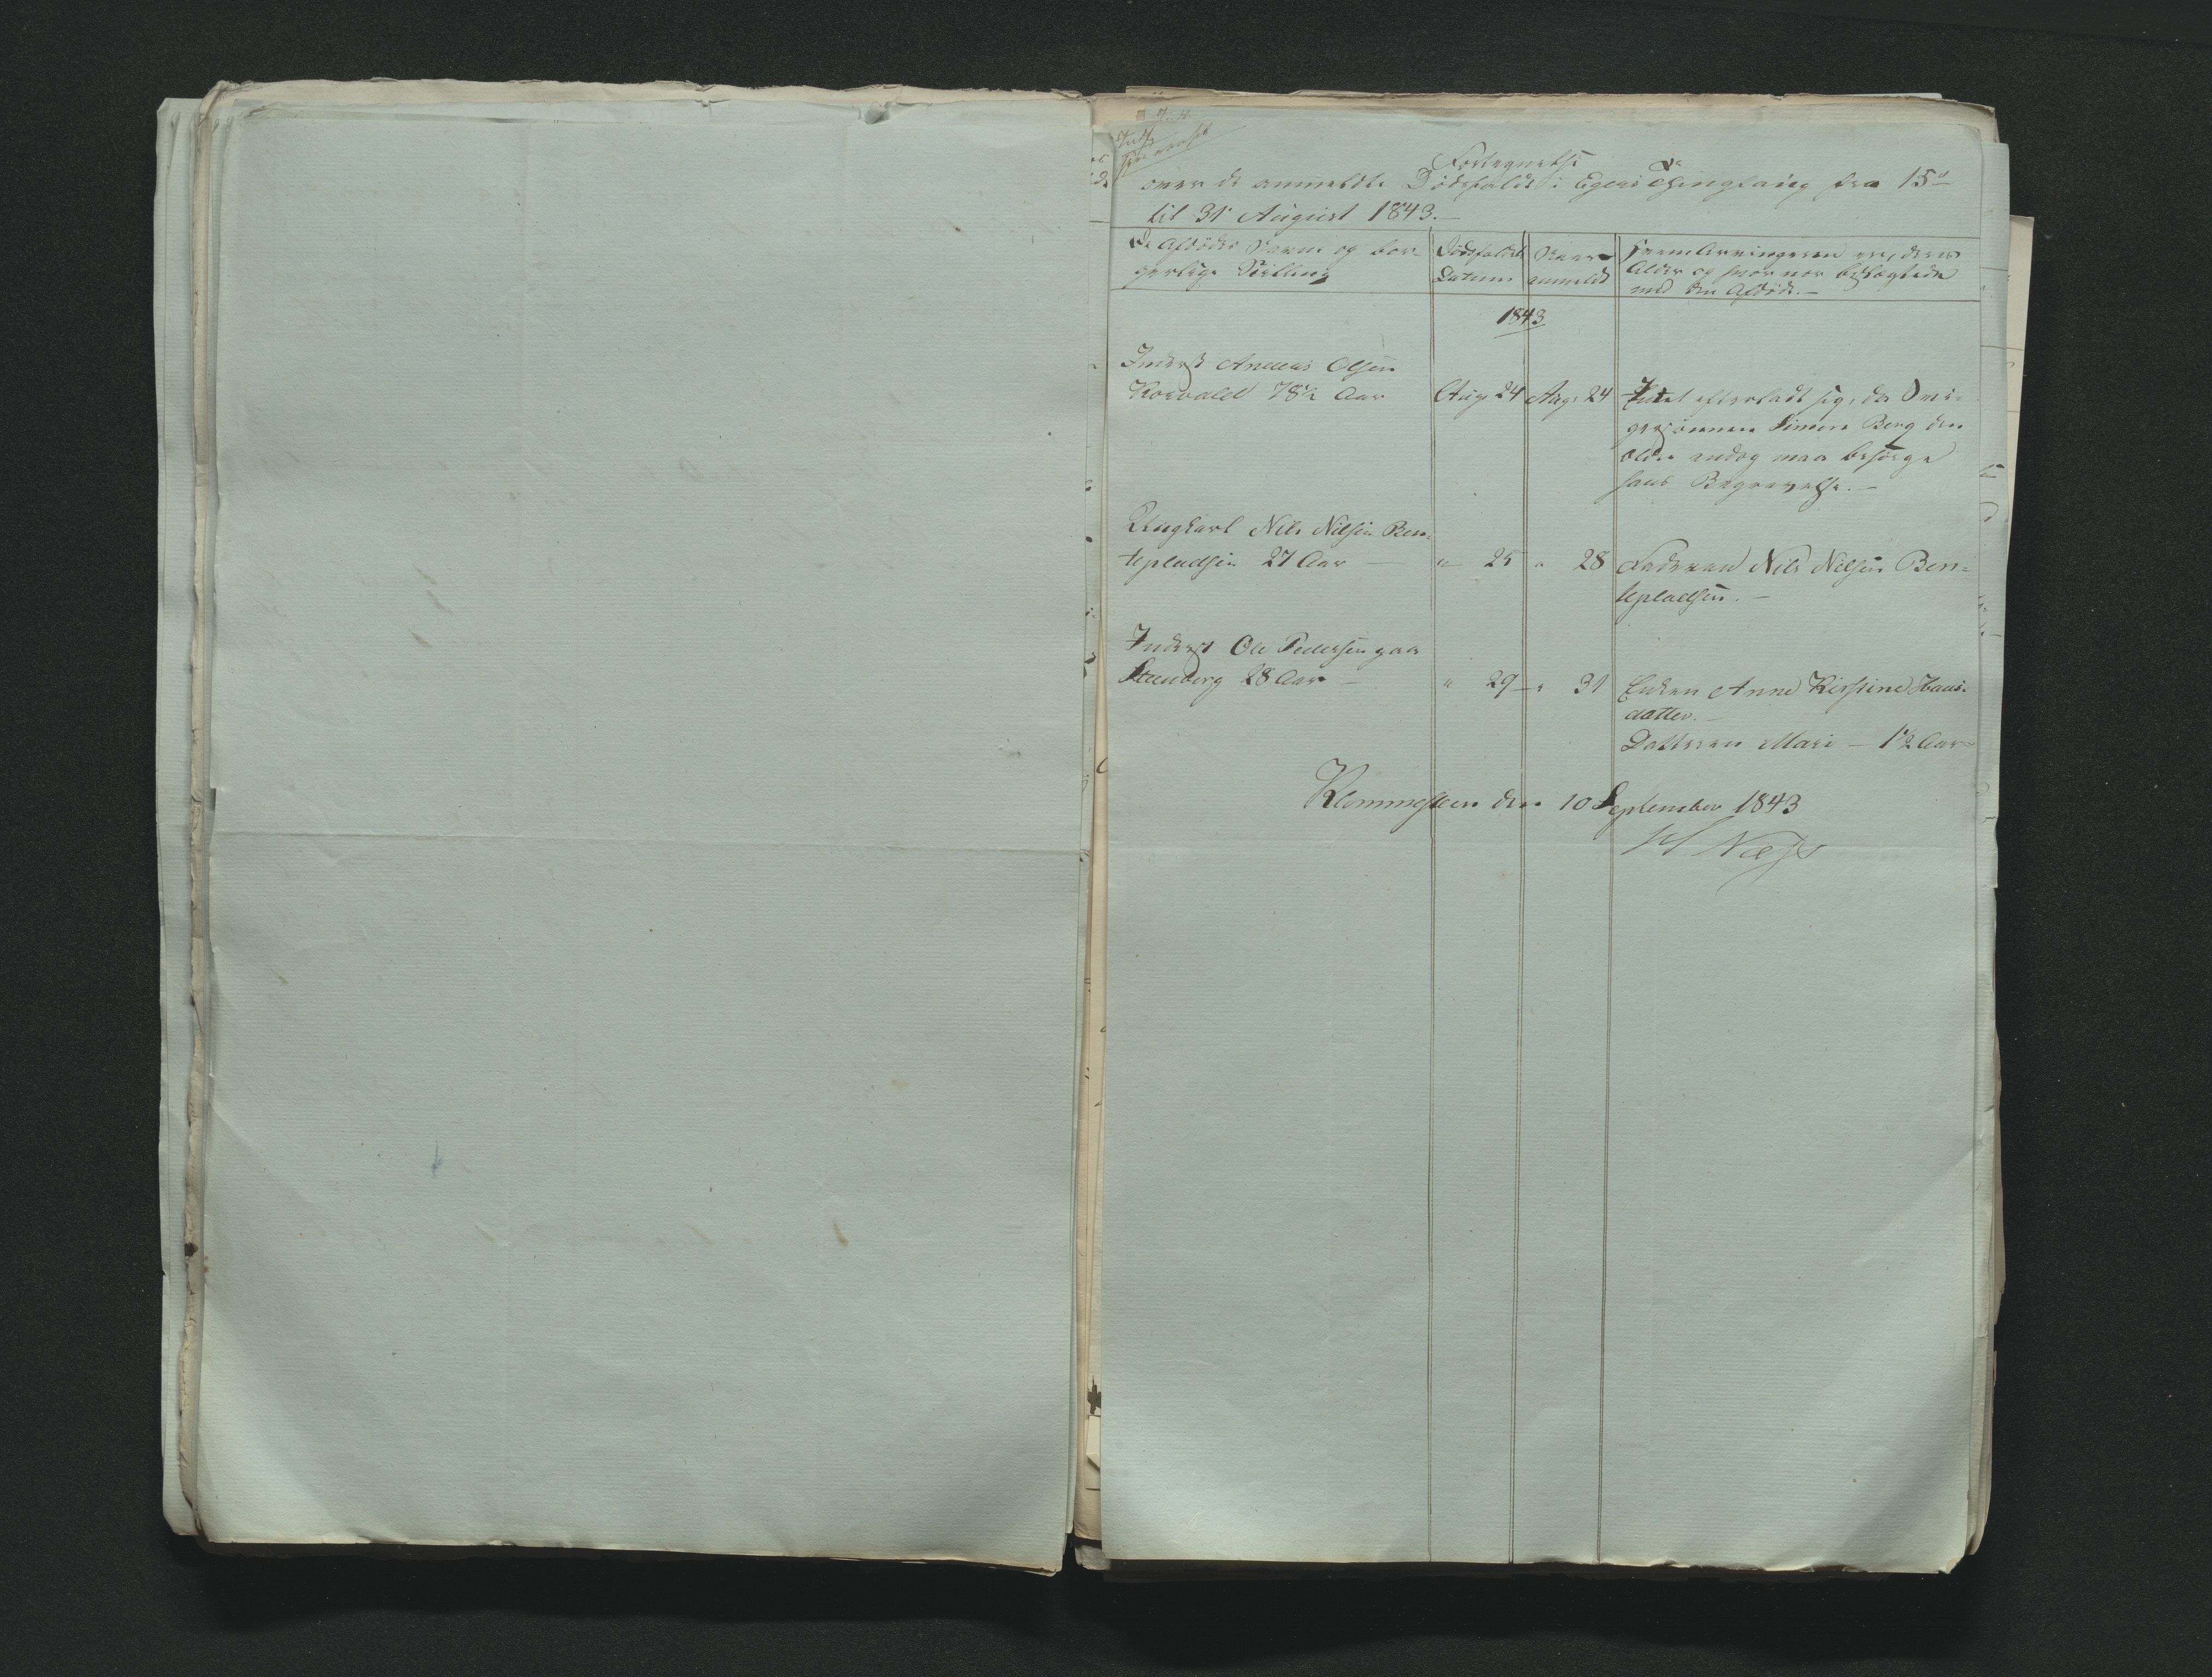 Fortegnelse
over de anmeldte Dødsfald i Egers Thinglaug fra 15de
til 31 August 1843.
De Afdødes Navne og bor-
gerlige Stilling
Dødsfaldets
Datum
Naar
anmeldt
Hvem Arvingerne ere, deres
Alder og hvor nær beslægtede
med den Afdøde.
1843
Inderst Andreas Olsen
Korvald 78½ Aar
Aug 24
Aug. 24
Intet efterladt sig, da
Simen Berg den
ældre endog maa besørge
hans Begravelse.
Ungkarl Nils Nilsen Ben-
tepladsen 27 Aar
" 25
" 28
Faderen Nils Nilsen Ben-
tepladsen.
Inderst Ole Pedersen paa
Steenberg 28 Aar
" 29
" 31
Enken Anne Kirstine Hans-
datter.
Datteren Mari 1½ Aar
Klommesteen den 10 September 1843
Næss